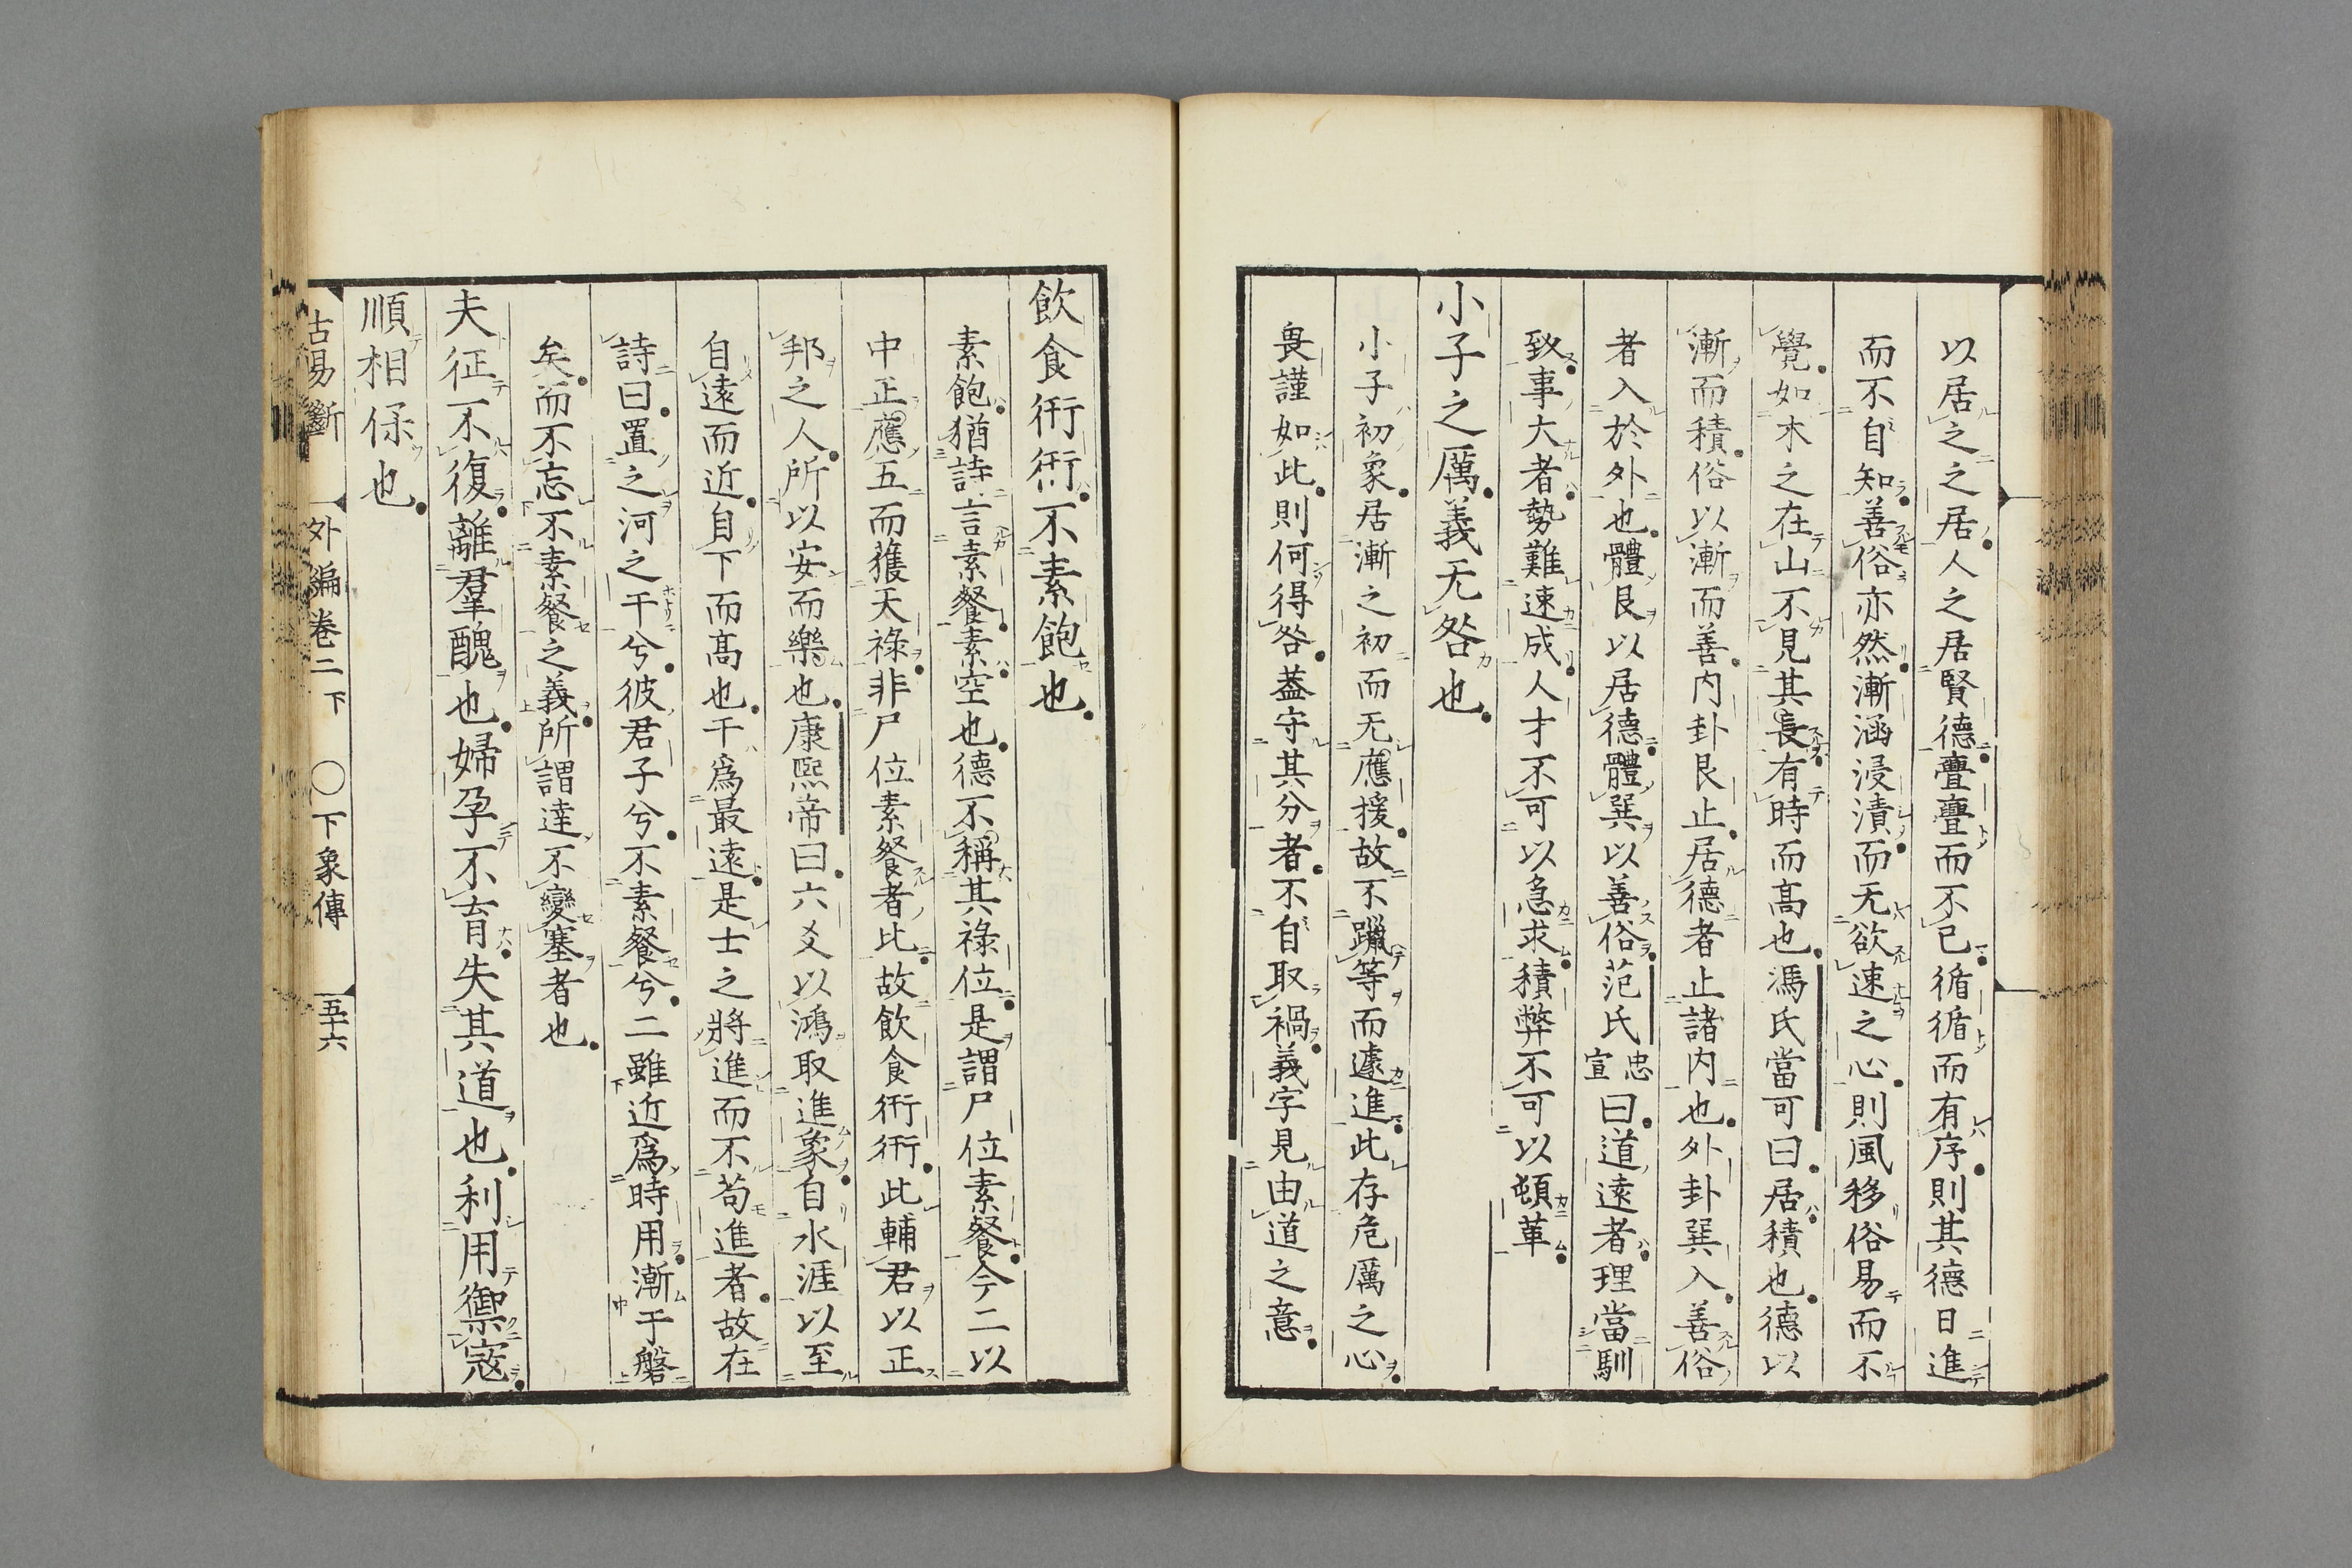 以居之之居人之居賢德亹亹而不已循循而有序則其德日進
而不自知善俗亦然漸涵浸漬而无欲速之心則風移俗易而不
覺如木之在山不見其長有時而高也馮氏當可曰居積也德以
漸而積俗以漸而善内卦艮止居德者止諸内也外卦巽入善俗
者入於外也體艮以居德體巽以善俗范氏忠宣曰道遠者理當馴
致事大者勢難速成人才不可以急求積弊不可以頓革
小子之厲義无咎也
小子初象居漸之初而无應援故不躐等而遽進此存危厲之心
畏謹如此則何得咎葢守其分者不自取禍義字見由道之意
飲食衎衎不素飽也
素飽猶詩言素餐素空也德不稱其祿位是謂尸位素餐今二以
中正應五而獲天祿非尸位素餐者比故飲食衎衎此輔君以正
邦之人所以安而樂也康熙帝曰六爻以鴻取進象自水涯以至
自遠而近自下而高也干為最遠是士之將進而不苟進者故在
詩曰置之河之干兮彼君子兮不素餐兮二雖近爲時用漸于磐
矣而不忘不素餐之義所謂達不變塞者也
夫征不復離羣醜也婦孕不育失其道也利用禦寇
順相保也
古易斷 外編卷二下 〇下象傳 五十六